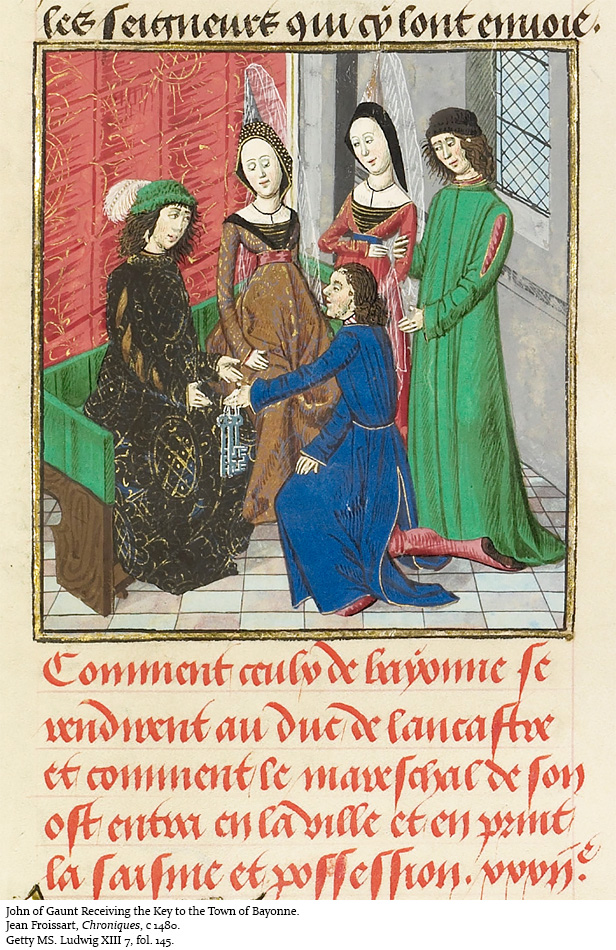 les seigneurs qui cy sont envoie.
Comment ceulx de bayonne se
rendirent au duc de lancastre
et comment le mareschal de son
ost entra en la ville et en print
la saisine et possession. xxxii.e
John of Gaunt Receiving the Key to the Town of Bayonne.
Jean Froissart, Chroniques, c 1480.
Getty MS. Ludwig XIII 7, fol. 145.